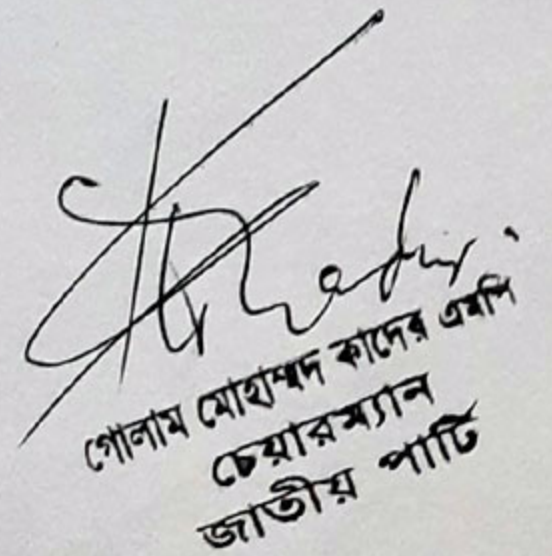 গোলাম মোহাম্মদ কাদের এমপি
চেয়ারম্যান
জাতীয় পার্টি